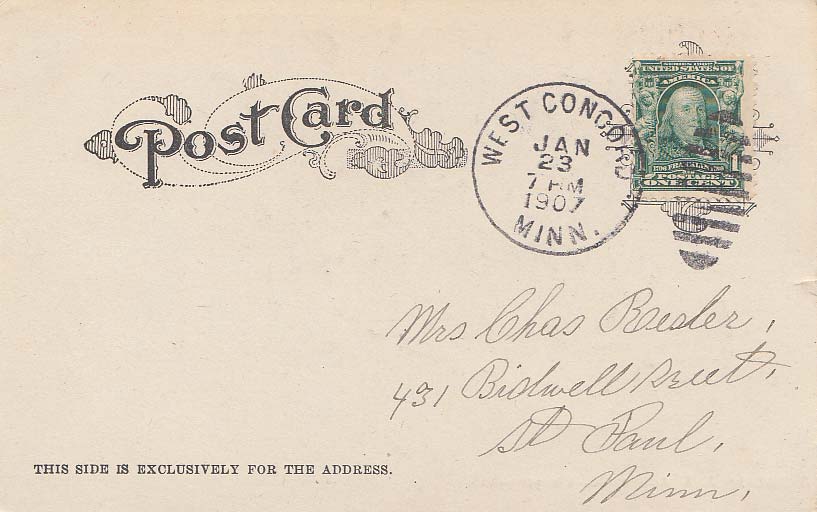 Post Card
WEST CONCORD
JAN
23
7 PM
1907
MINN.
SERIES 1902
UNITED STATES OF
AMERICA
POSTAGE
ONE CENT
Mrs Chas Reeder,
431 Bidwell Street,
St Paul,
Minn,
THIS SIDE IS EXCLUSIVELY FOR THE ADDRESS.